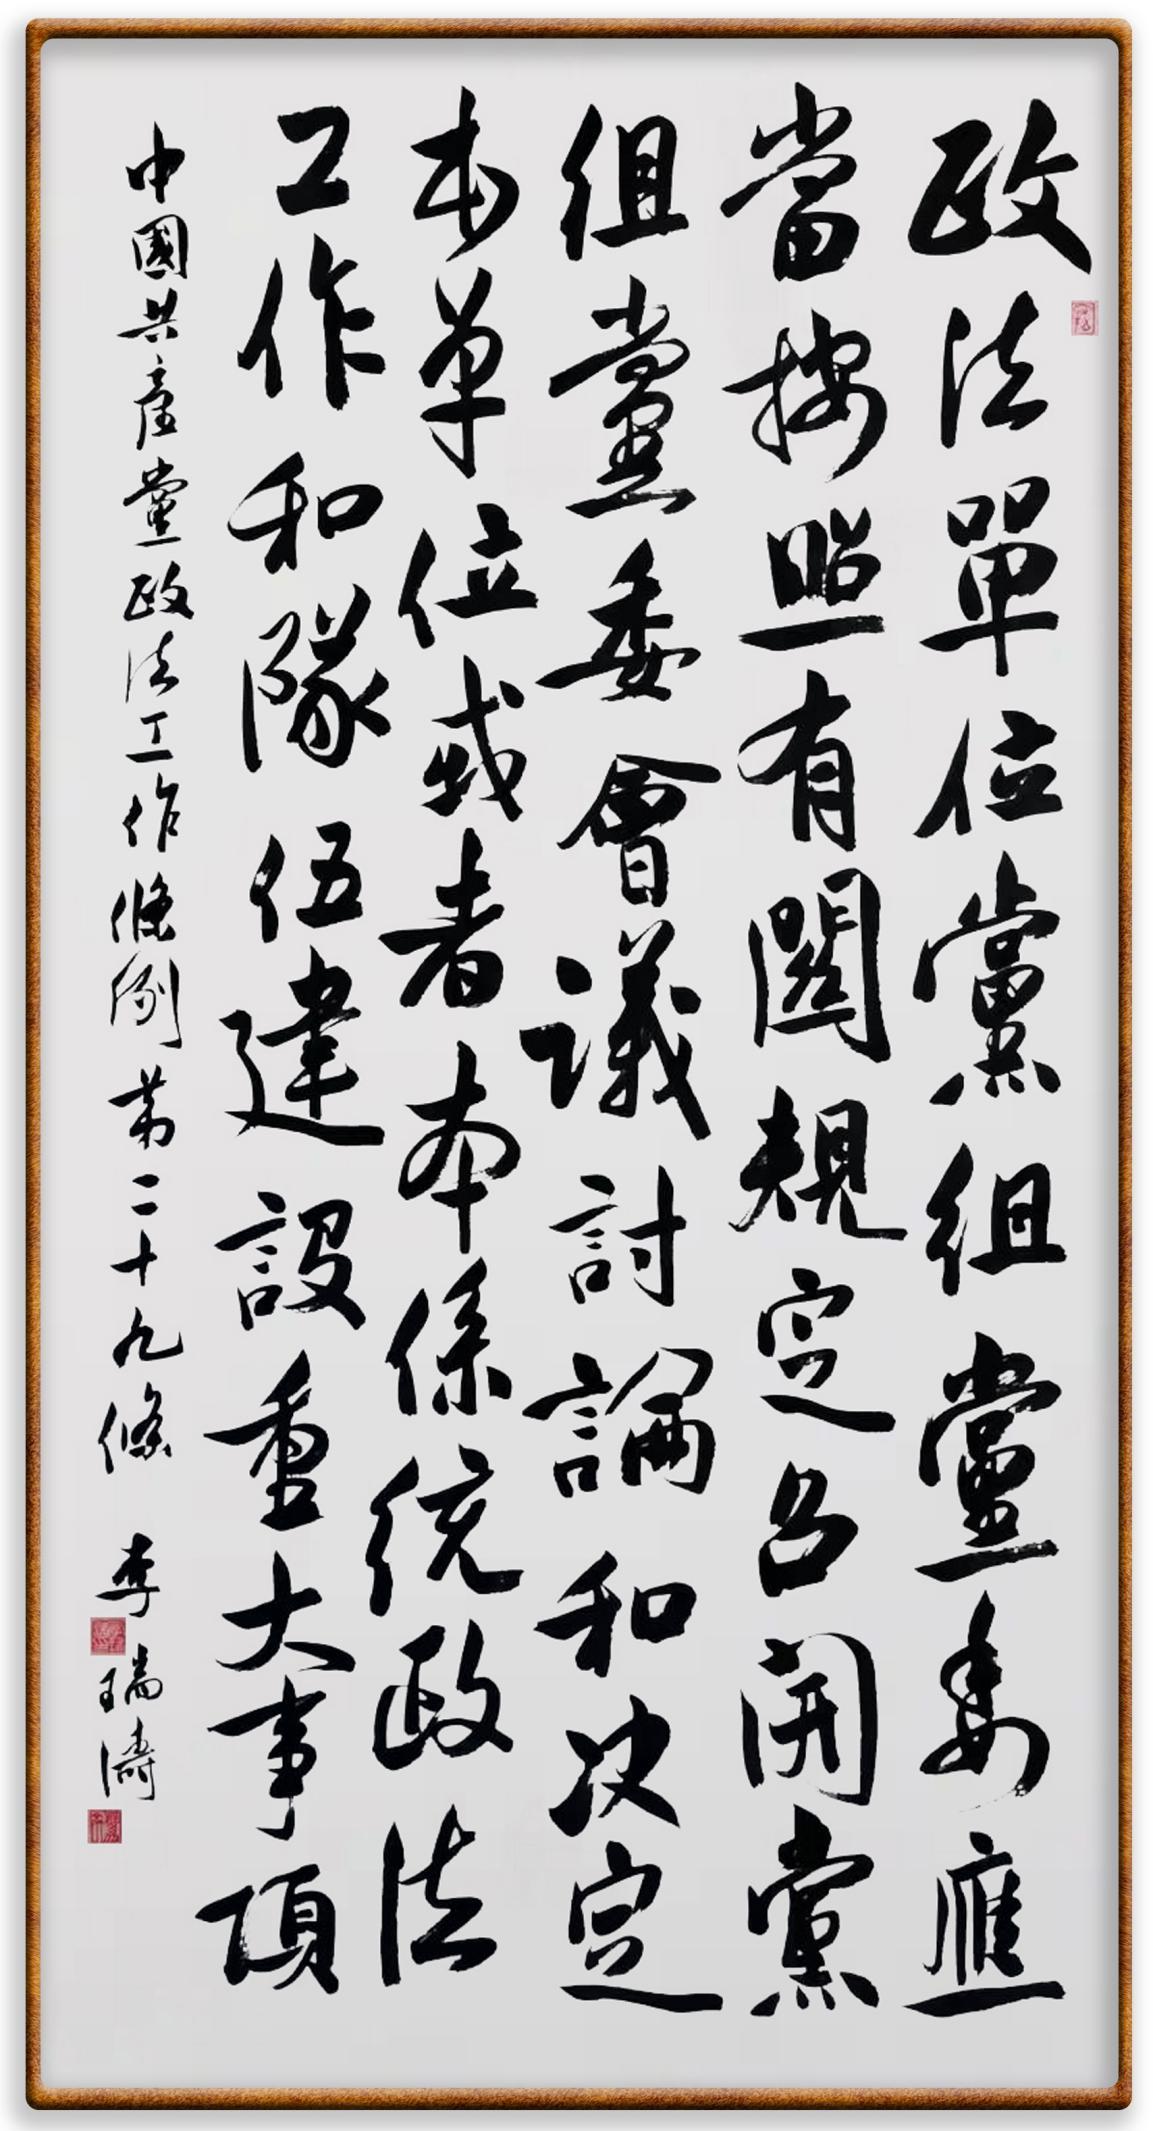 政法單位黨組黨委應
當按照有關規定召開黨
組黨委會議討論和决定
本單位或者本係統政法
工作和隊伍建設重大事項
中國共產黨政法工作條例第二十九條 李瑞濤